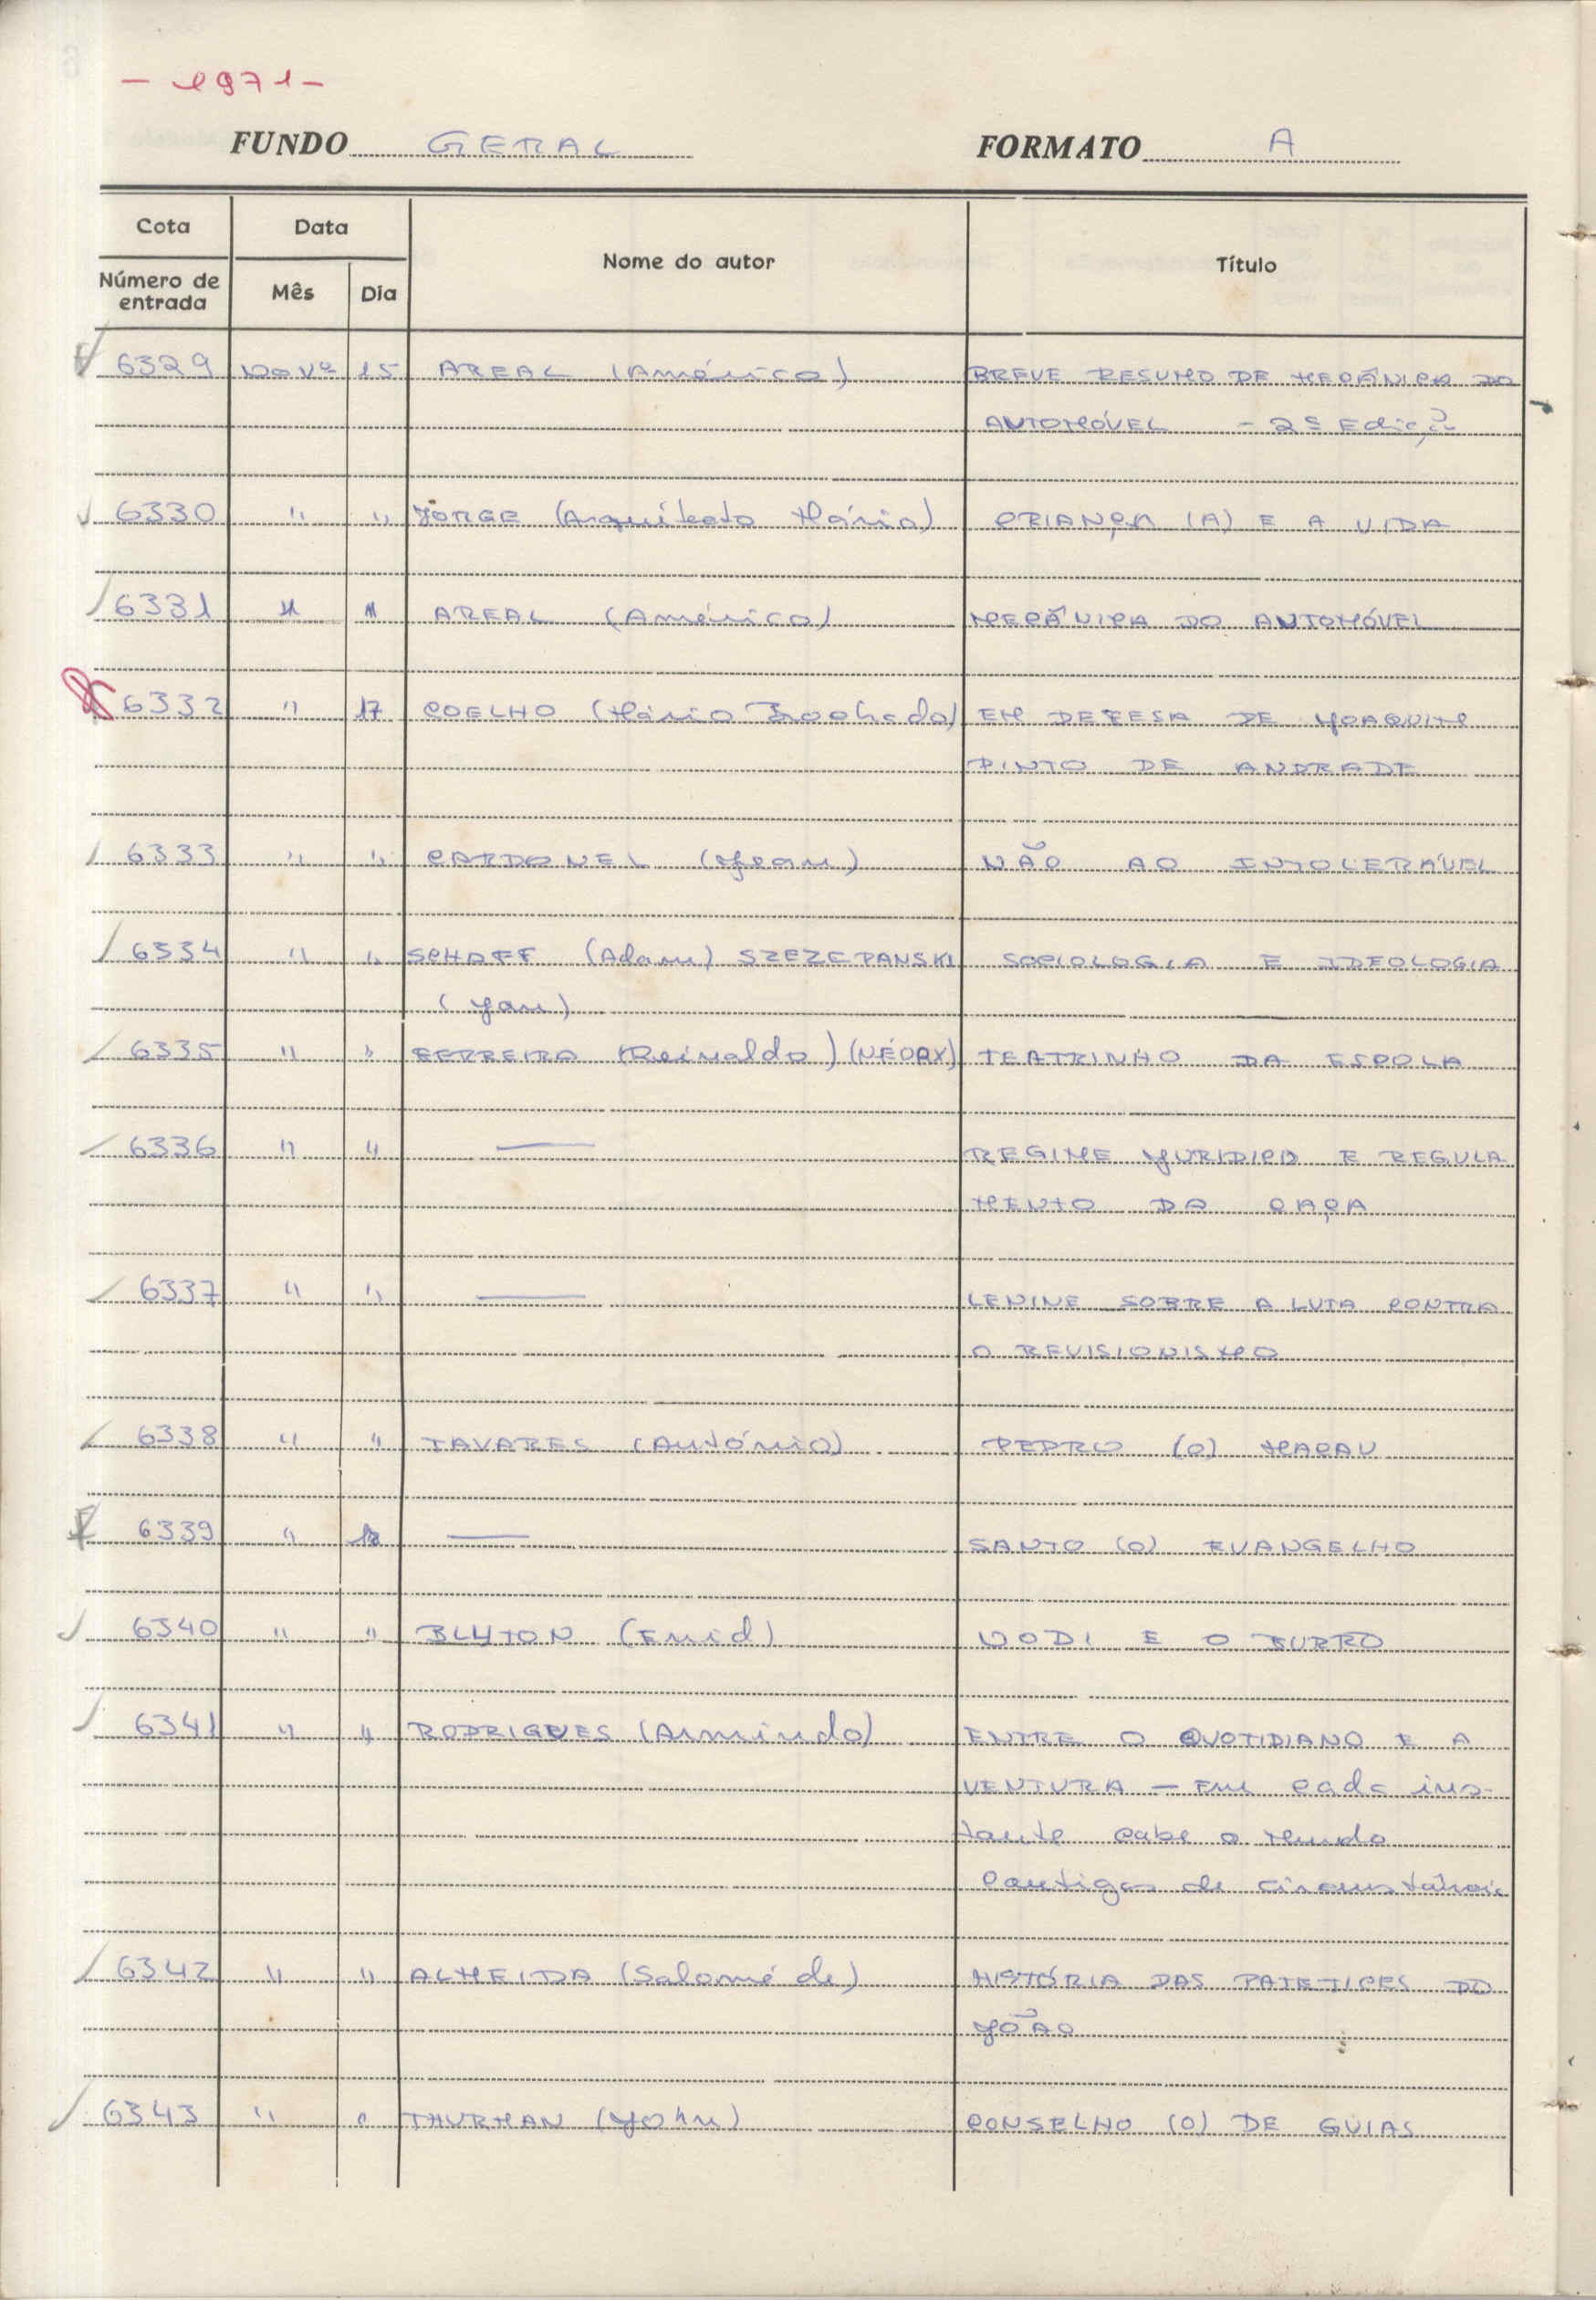 - 1971 -
FUNDO GERAL FORMATO A
Cota Data Nome do autor Título
Número de entrada Mês Dia
6329 Novº 15 AREAL (Américo) BREVE RESUMO DE MECÂNICA DO
AUTOMÓVEL - 2ª Edição
6330 " " JORGE (Arquitecto Mário) CRIANÇA (A) E A VIDA
6331 " " AREAL (Américo) MECÂNICA DO AUTOMÓVEL
6332 " 17 COELHO (Mário Brochado) EM DEFESA DE JOAQUIM
PINTO DE ANDRADE
6333 " " CARDONEL (Jean) NÃO AO INTOLERÁVEL
6334 " " SCHAFF (Adam) SZEZCPANSKI SOCIOLOGIA E IDEOLOGIA
(Jan)
6335 " " FERREIRA (Reinaldo) (NÉORX) TEATRINHO DA ESCOLA
6336 " " — REGIME JURIDICO E REGULA
MENTO DA CAÇA
6337 " " — LENINE SOBRE A LUTA CONTRA
O REVISIONISMO
6338 " " TAVARES (António) PEDRO (O) MACAU
6339 " 18 — SANTO (O) EVANGELHO
6340 " " BLYTON (Enid) NODI E O BURRO
6341 " " RODRIGUES (Armindo) ENTRE O QUOTIDIANO E A
VENTURA — Em cada ins-
tante cabe o mundo
Cantigas de circunstância
6342 " " ALMEIDA (Salomé de) HISTÓRIA DAS PATETICES DO
JOÃO
6343 " " THURMAN (John) CONSELHO (O) DE GUIAS